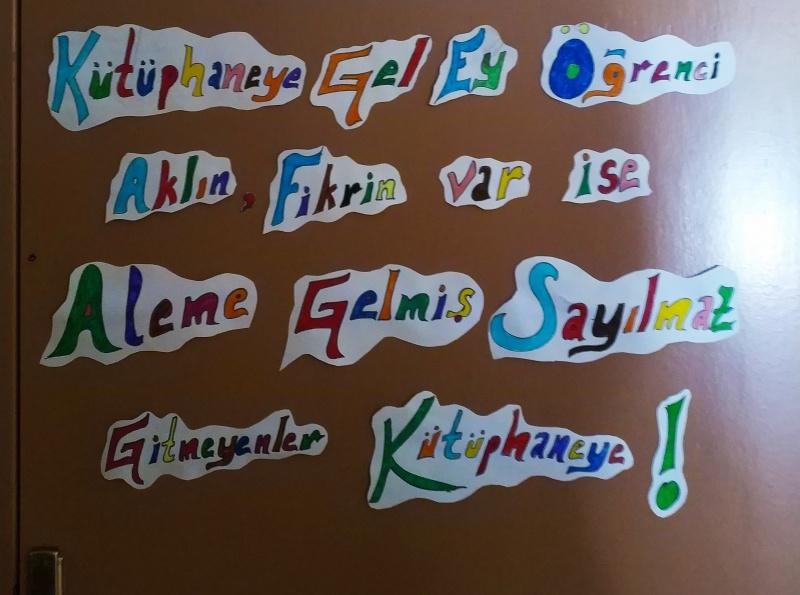 Kütüphaneye Gel Ey Öğrenci
Aklın, Fikrin var ise
Aleme Gelmiş Sayılmaz
Gitmeyenler Kütüphaneye!